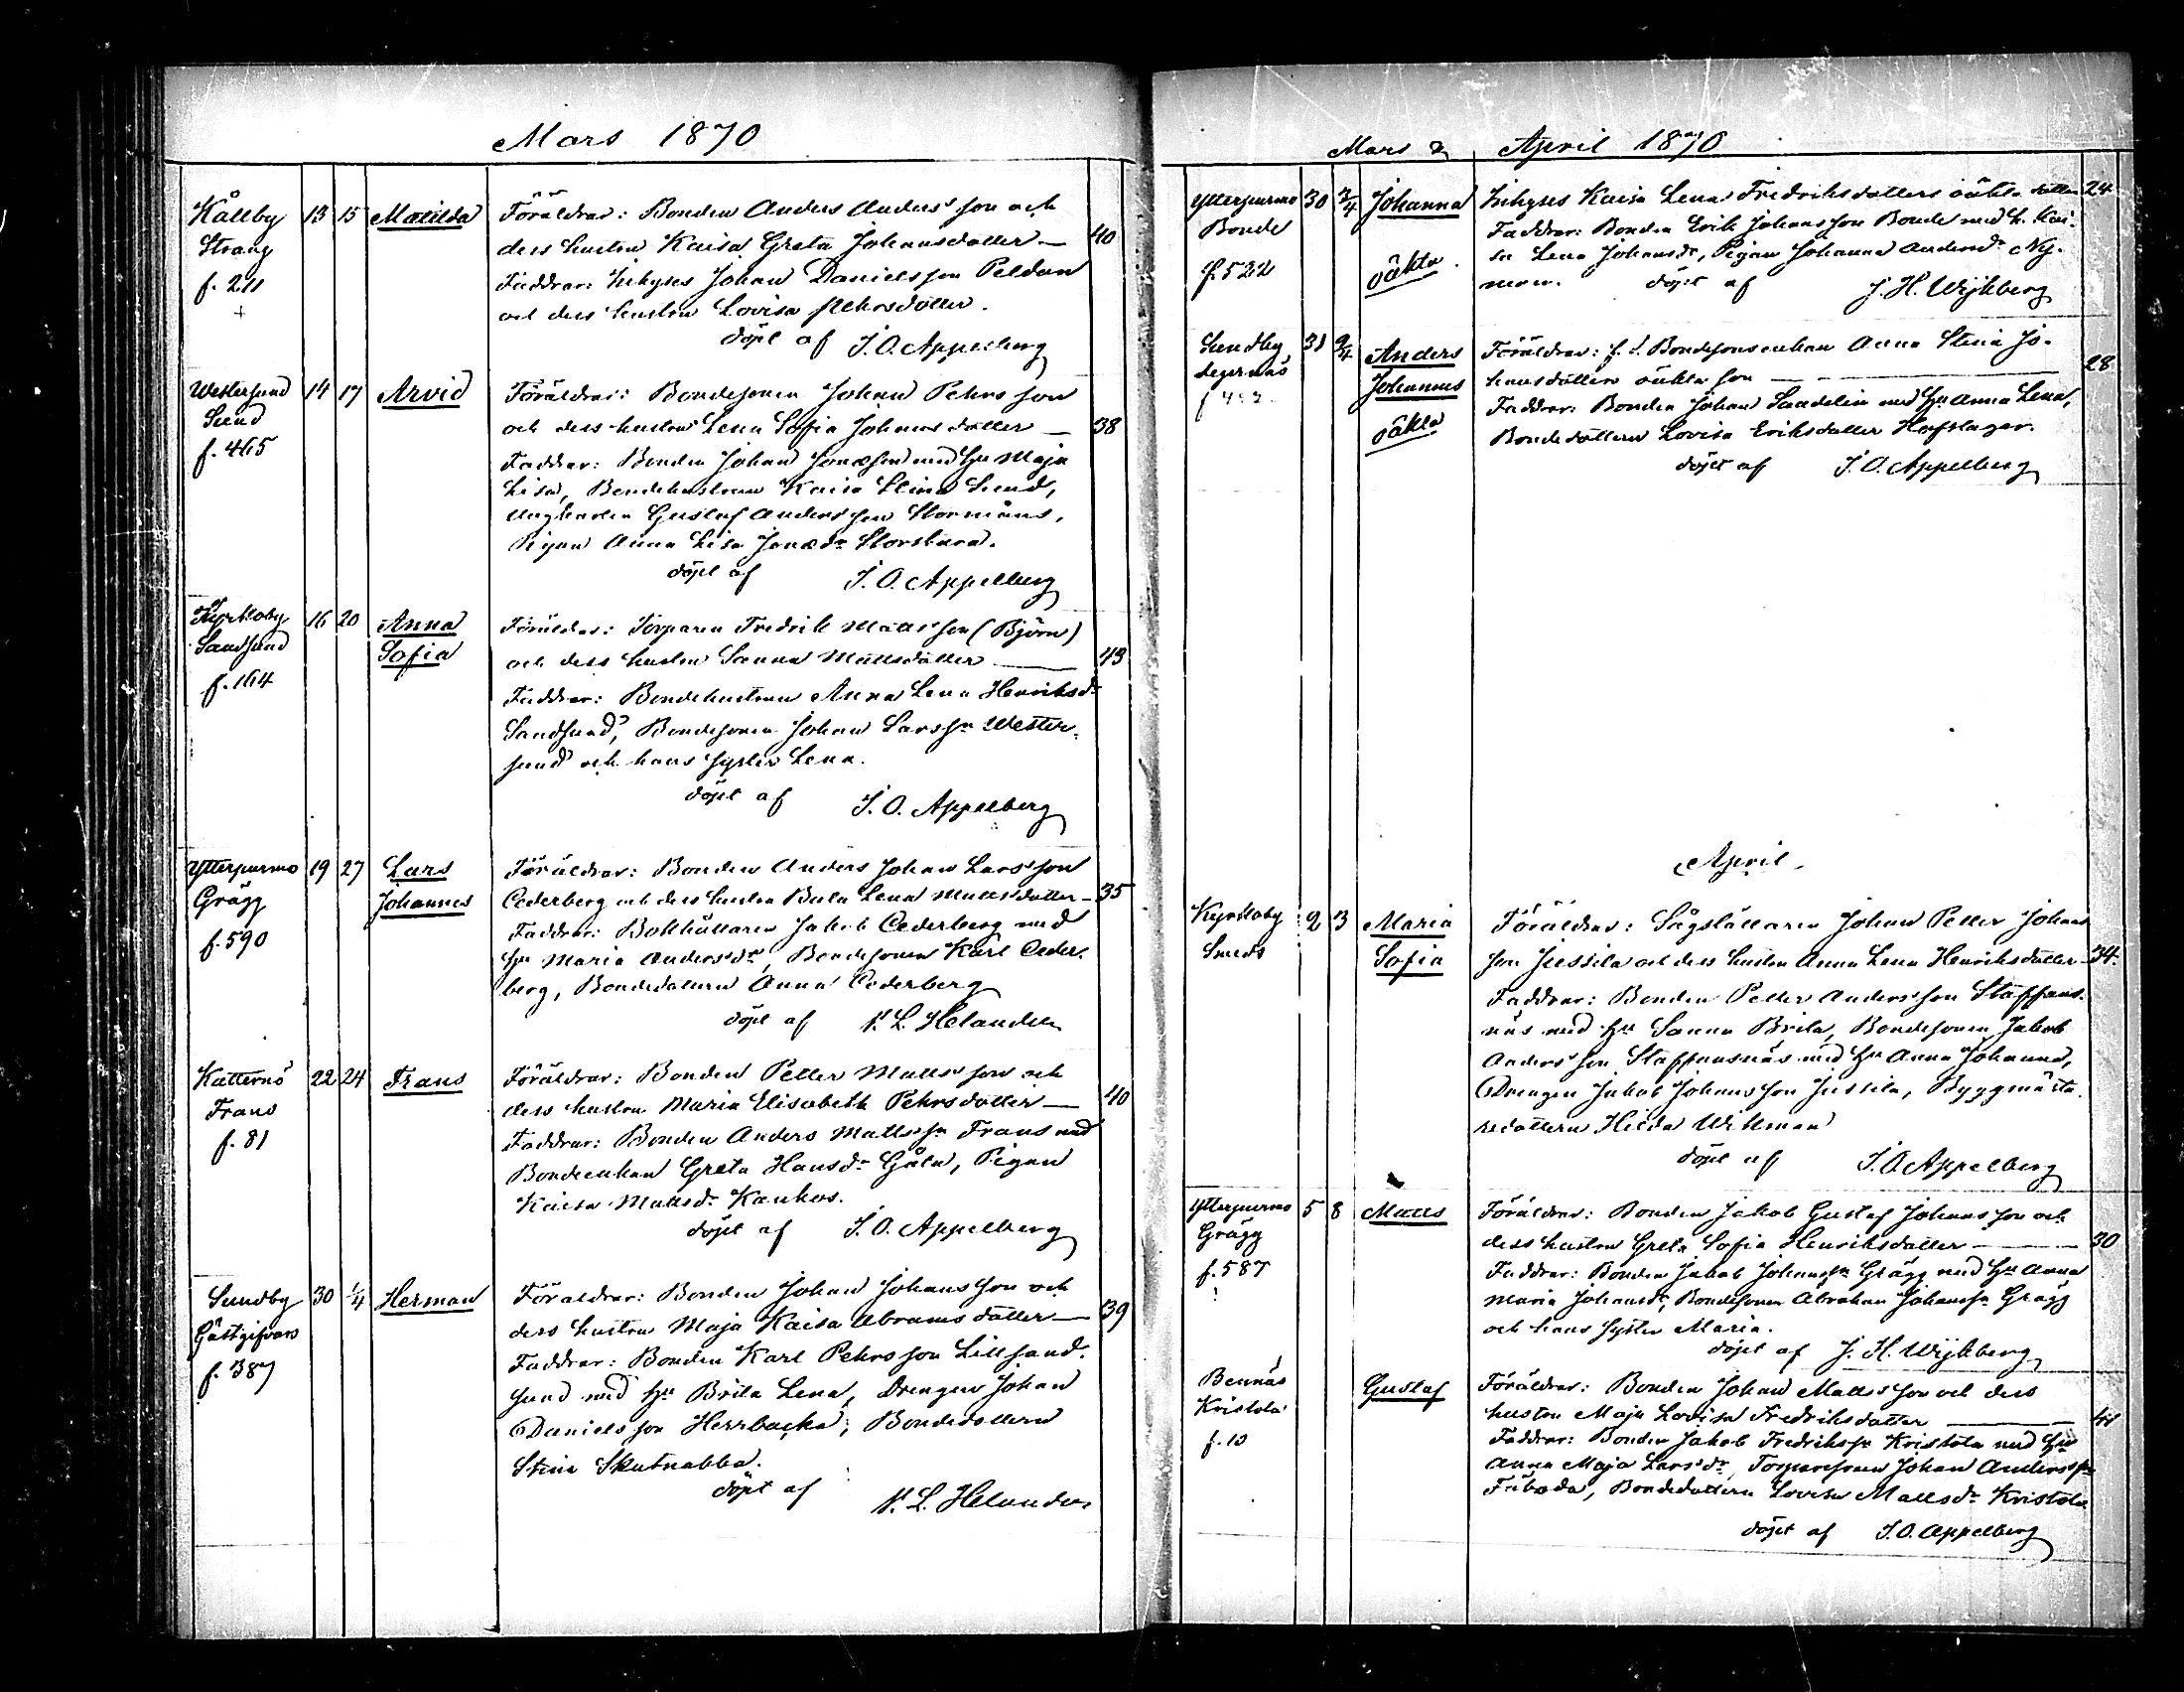 Mars 1870
Kållby 13 15 Matilda Föräldrar: Bonden Anders Andersson och
Strang dess hustru Kaisa Greta Johansdotter — 40
f. 211 Faddrar: Inhyses Johan Danielsson Peldan
+ och dess hustru Lovisa Pehrsdotter.
döpt af J. O. Appelberg
Westersund 14 17 Arvid Föräldrar: Bondesonen Johan Pehrsson
Sund och dess hustru Lena Sofia Johansdotter — 38
f. 465 Faddrar: Bonden Johan Jonasson med hu Maja
Lisa, Bondehustrun Kaisa Stina Sund,
Ungkarlen Gustaf Andersson Stormåns,
Pigan Anna Lisa Jonasdr Storstara.
döpt af J. O. Appelberg
Kyrkoby 16 20 Anna Föräldrar: Torparen Fredrik Mattsson (Björn)
Sandsund Sofia och dess hustru Sanna Mattsdotter — 43
f. 164 Faddrar: Bondehustrun Anna Lena Henriksdr
Sandsund, Bondesonen Johan Larssn Wester-
sund och hans syster Lena.
döpt af J. O. Appelberg
Ytterpurmo 19 27 Lars Föräldrar: Bonden Anders Johan Larsson
Grägg Johannes Cederberg och dess hustru Beata Lena Mattsdotter — 35
f. 590 Faddrar: Bokhållaren Jakob Cederberg med
hu Maria Andersdr, Bondesonen Karl Ceder-
berg, Bondedottern Anna Cederberg
döpt af K. L. Helander
Katternö 22 24 Frans Föräldrar: Bonden Petter Mattsson och
Frans dess hustru Maria Elisabeth Pehrsdotter — 40
f. 81 Faddrar: Bonden Anders Mattssn Frans med
Bondeenkan Greta Hansdr Gåla, Pigan
Kaisa Mattsdr Kankos.
döpt af J. O. Appelberg
Sundby 30 1/4 Herman Föräldrar: Bonden Johan Johansson och
Gästgifvars dess hustru Maja Kaisa Abramsdotter — 39
f. 387 Faddrar: Bonden Karl Pehrsson Lillsand-
sund med hu Brita Lena, Drengen Johan
Danielsson Herrbacka, Bondedottern
Stina Skutnabba.
döpt af K. L. Helander
Mars & April 1870
Ytterpurmo 30 3/4 Johanna Inhyses Kaisa Lena Fredriksdotters oäkta dotter 24
Bonde Faddrar: Bonden Erik Johansson Bonde med h. Kai-
f. 522 oäkta. sa Lena Johansdr, Pigan Johanna Andersdr Ny-
man. döpt af J. H. Wijkberg
Sundby 31 9/4 Anders Föräldrar: f. d. Bondesonsenkan Anna Stina Jo-
Degernäs Johannes hansdotters oäkta son — 28
oäkta Faddrar: Bonden Johan Sandelin med hu Anna Lena,
Bondedottern Lovisa Eriksdotter Hofslagar.
döpt af J. O. Appelberg
April.
Kyrkoby 2 3 Maria Föräldrar: Sågställaren Johan Petter Johans
Smeds Sofia son Jussila och dess hustru Anna Lena Henriksdotter — 34.
Faddrar: Bonden Petter Andersson Staffans-
näs med hu Sanna Brita, Bondesonen Jakob
Andersson Staffansnäs med hu Anna Johanna,
Drengen Jakob Johansson Jussila, Byggmästa-
redottern Hilda Wikman
döpt af J. O. Appelberg
Ytterpurmo 5 8 Matts Föräldrar: Bonden Jakob Gustaf Johansson och
Grägg dess hustru Greta Sofia Henriksdotter — 30
f. 587 Faddrar: Bonden Jakob Johanssn Grägg med hu Anna
Maria Johansdr, Bondesonen Abraham Johanssn Grägg
och hans syster Maria.
döpt af J. H. Wijkberg
Bennäs Gustaf Föräldrar: Bonden Johan Mattsson och dess
Kristola hustru Maja Lovisa Fredriksdotter — 41
f. 10 Faddrar: Bonden Jakob Fredrikssn Kristola med hu
Anna Maja Larsdr, Torparesonen Johan Anderssn
Fäboda, Bondedottern Lovisa Mattsdr Kristola
döpt af J. O. Appelberg